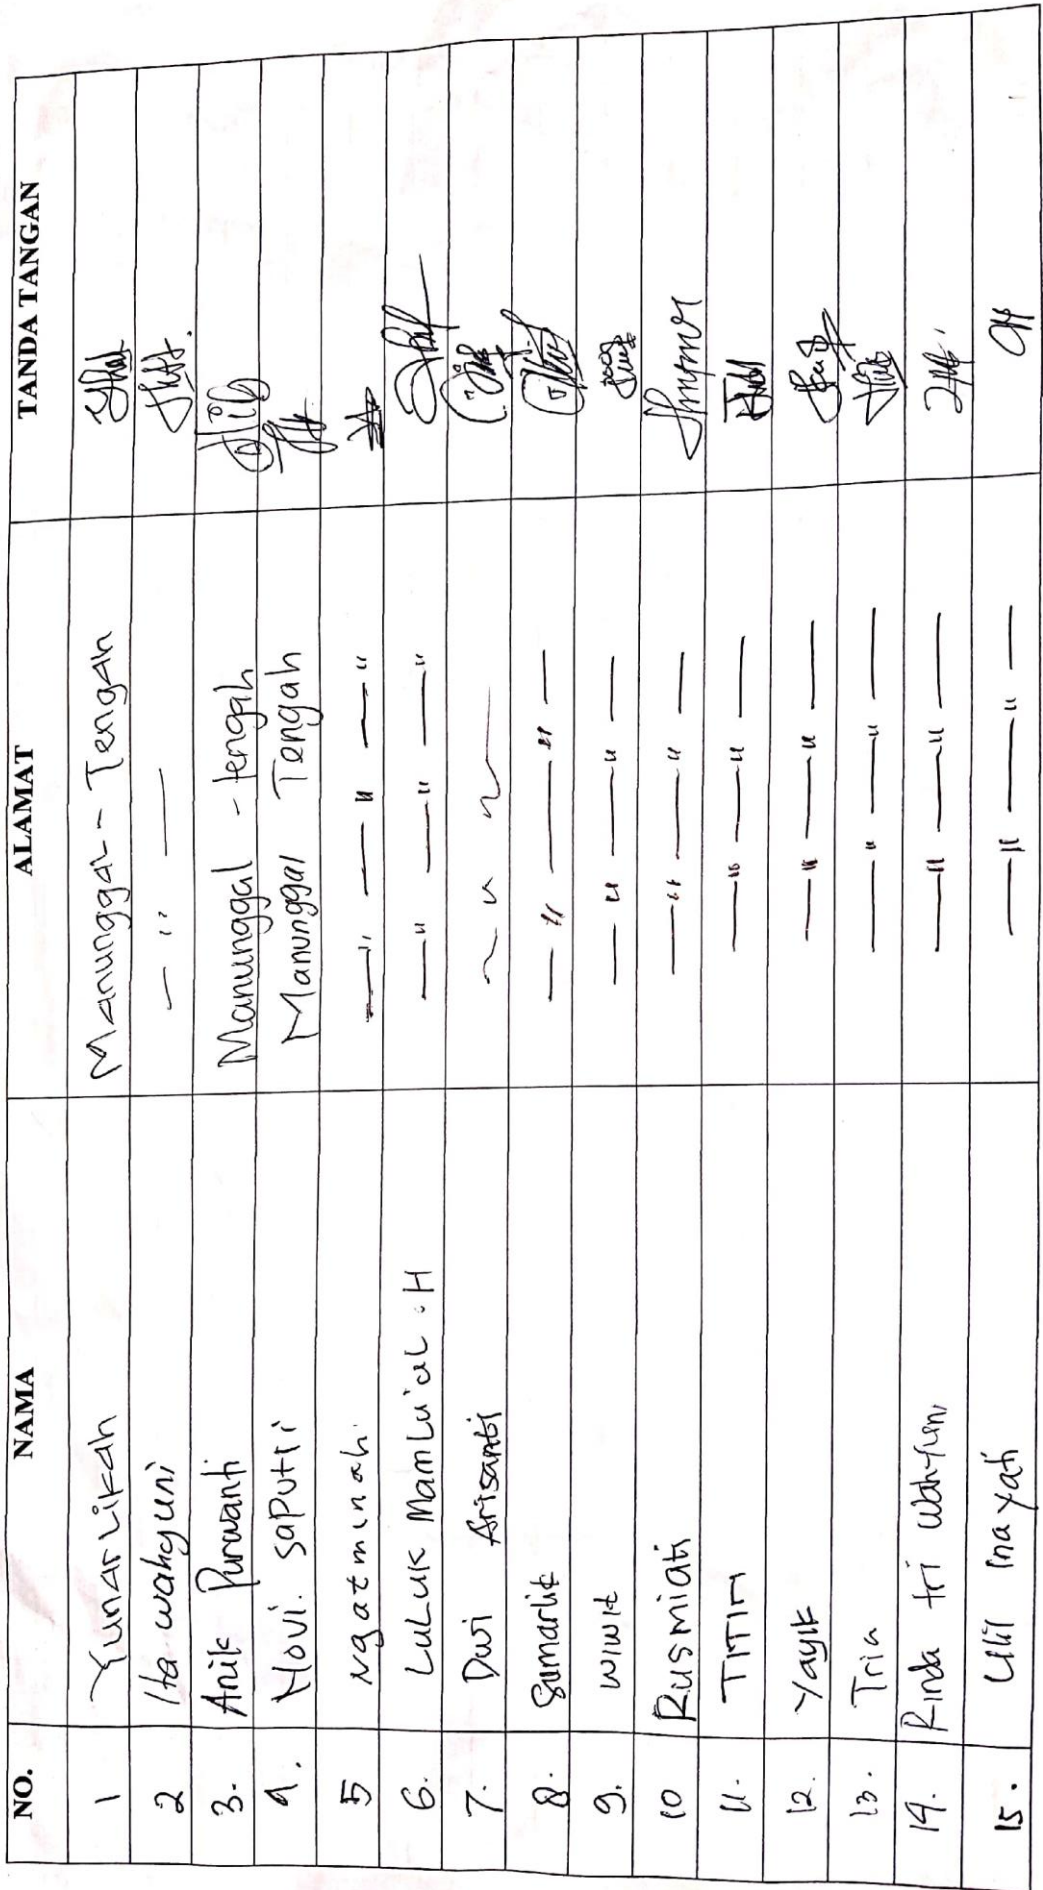 NO. NAMA ALAMAT TANDA TANGAN
1 Yunarlikah Manunggal - Tengah
2 Ita wahyuni — " —
3. Anik Purwanti Manunggal - tengah
4. Novi. saputri Manunggal Tengah
5 Ngatminah. — " — " — "
6. LuLuk Mamlu'aL .H — " — " — "
7. Dwi Arisanti ~ " ~
8. Sumarlik — " — " —
9. wiwit — " — " —
10 Rusmiati — " — " —
11. TITIN — " — " —
12. Yayik — " — " —
13. Tria — " — " —
14. Rinda tri wahyuni — " — " —
15. Ulil Inayati — " — " —